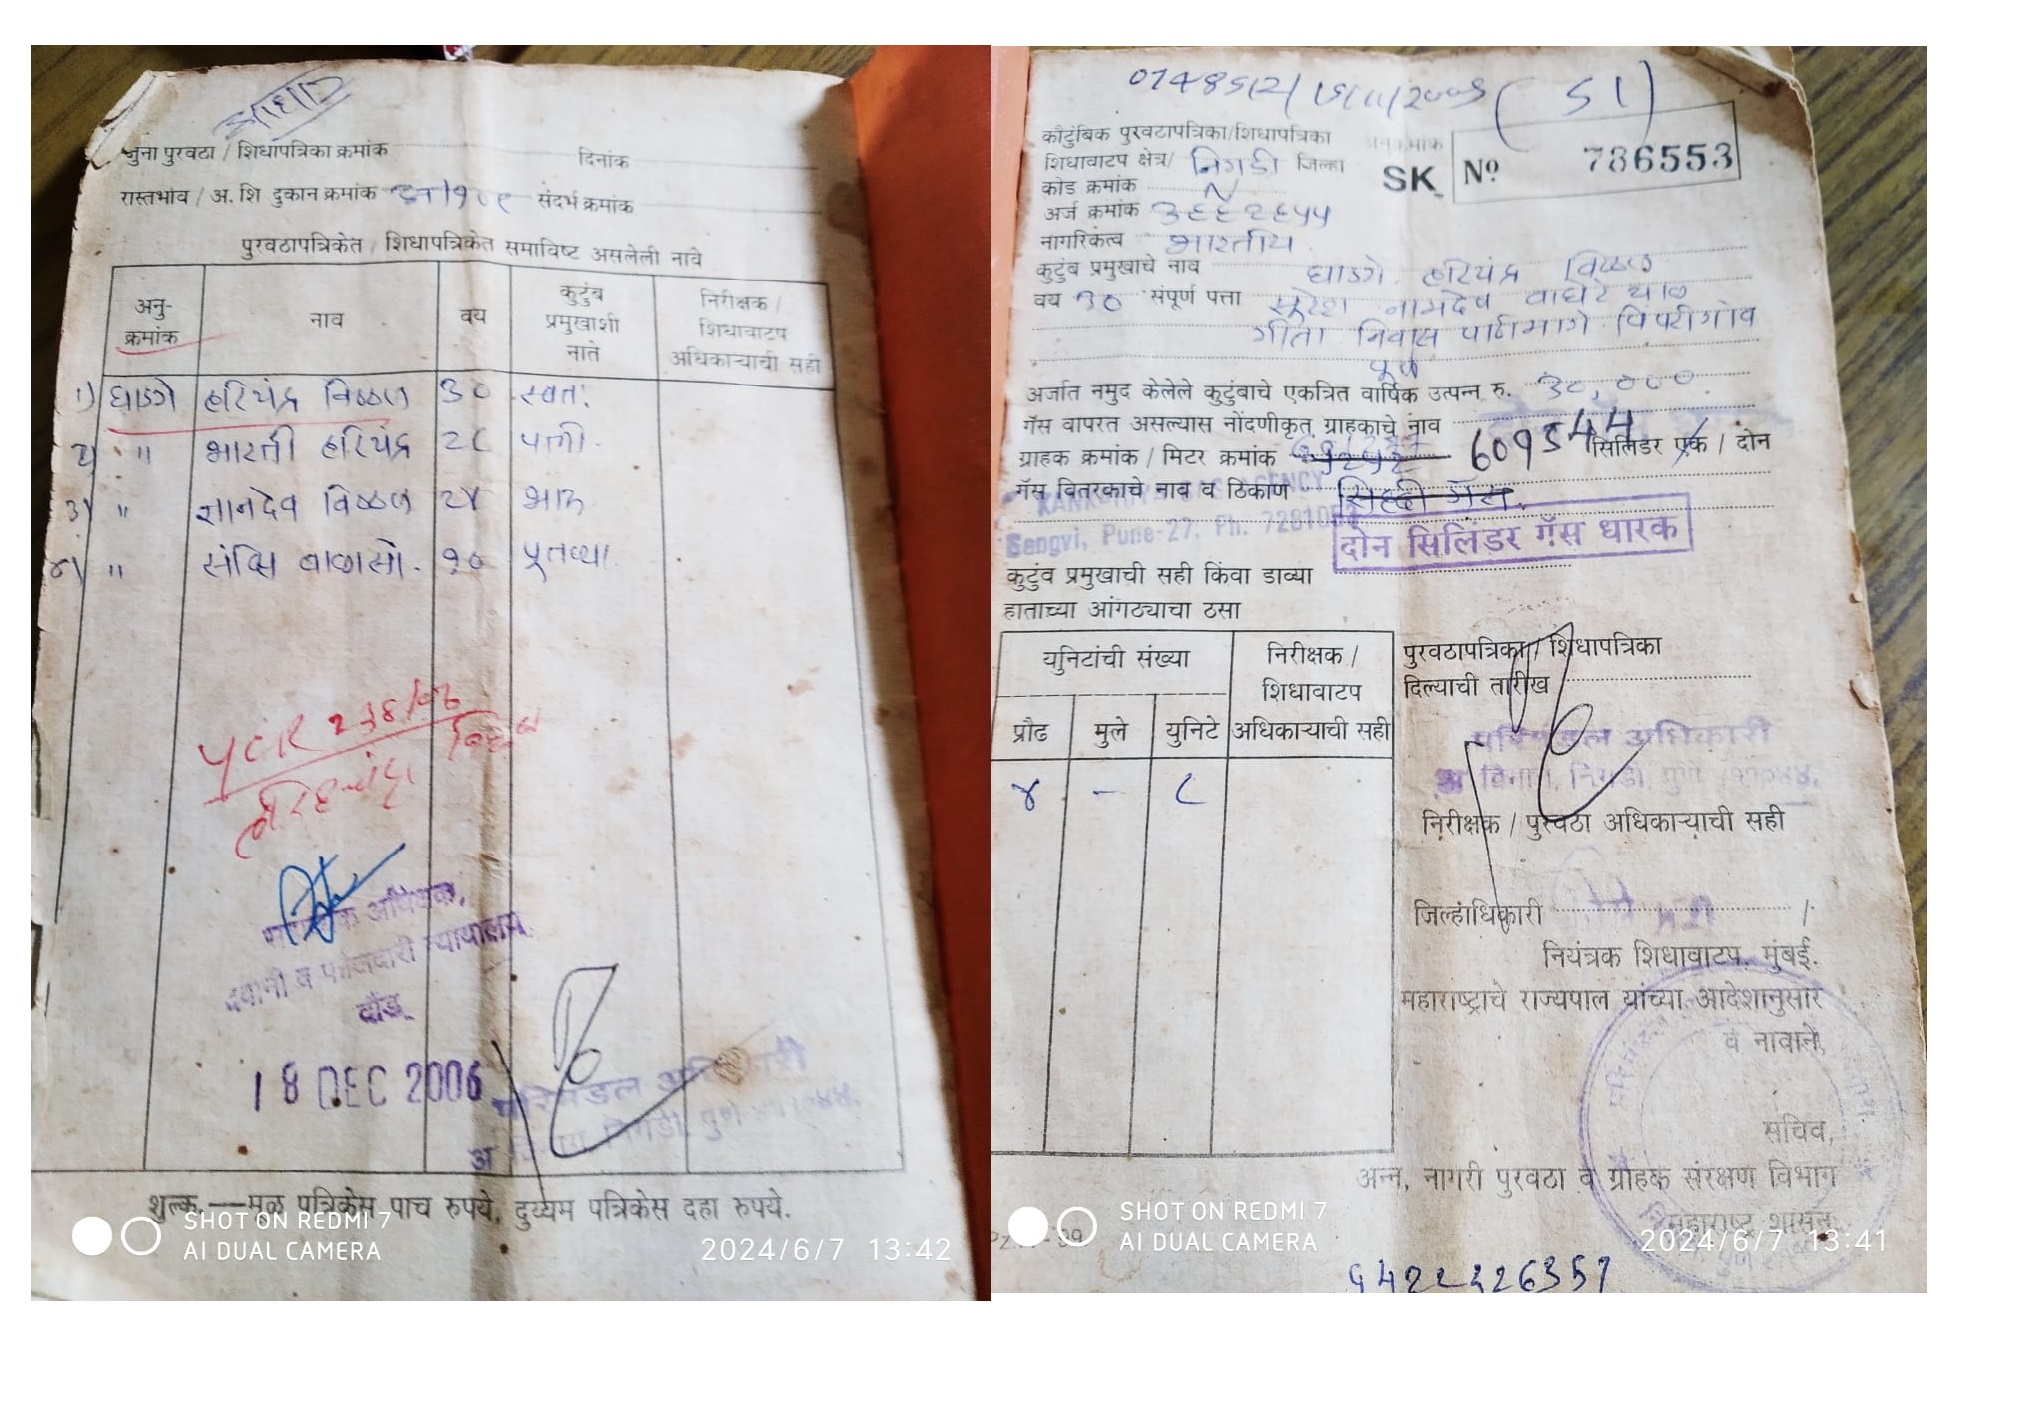 जुना पुरवठा / शिधापत्रिका क्रमांक दिनांक
रास्तभाव / अ. शि दुकान क्रमांक अ/१०९ संदर्भ क्रमांक
पुरवठापत्रिकेत / शिधापत्रिकेत समाविष्ट असलेली नावे
अनु-क्रमांक नाव वय कुटुंब प्रमुखाशी नाते निरीक्षक / शिधावाटप अधिकाऱ्याची सही
१) घाडगे हरिचंद्र विठ्ठल ३० स्वतः
२) " भारती हरिचंद्र २८ पत्नी
३) " ज्ञानदेव विठ्ठल २४ भाऊ
४) " बाळासो. १० पुतण्या
दिवाणी व फौजदारी न्यायालय
दौंड
18 DEC 2006
परिमंडल अधिकारी
शुल्क.—मूळ पत्रिकेस पाच रुपये, दुय्यम पत्रिकेस दहा रुपये.
SHOT ON REDMI 7
AI DUAL CAMERA
2024/6/7 13:42
(51)
कौटुंबिक पुरवठापत्रिका/शिधापत्रिका अनुक्रमांक
SK Nº 786553
शिधावाटप क्षेत्र/ निगडी जिल्हा
कोड क्रमांक N
अर्ज क्रमांक ३६६२६५५
नागरिकत्व भारतीय
कुटुंब प्रमुखाचे नाव घाडगे हरिचंद्र विठ्ठल
वय ३० संपूर्ण पत्ता सुरेश नामदेव वाघेरे चाळ
गीता निवास पाठीमागे पिंपरीगाव
पुणे
अर्जात नमुद केलेले कुटुंबाचे एकत्रित वार्षिक उत्पन्न रु. ३०,०००
गॅस वापरत असल्यास नोंदणीकृत ग्राहकाचे नाव
ग्राहक क्रमांक / मिटर क्रमांक 609544 सिलिंडर एक / दोन
गॅस वितरकाचे नाव व ठिकाण सिद्धी गॅस.
Sangvi, Pune-27. Ph.
दोन सिलिंडर गॅस धारक
कुटुंब प्रमुखाची सही किंवा डाव्या
हाताच्या आंगठ्याचा ठसा
युनिटांची संख्या निरीक्षक / शिधावाटप अधिकाऱ्याची सही
प्रौढ मुले युनिटे
४ - ८
पुरवठापत्रिका / शिधापत्रिका
दिल्याची तारीख
परिमंडल अधिकारी
अ विभाग, निगडी, पुणे ४११०४४.
निरीक्षक / पुरवठा अधिकाऱ्याची सही
जिल्हाधिकारी /
नियंत्रक शिधावाटप, मुंबई.
महाराष्ट्राचे राज्यपाल यांच्या आदेशानुसार
व नावाने,
सचिव,
अन्न, नागरी पुरवठा व ग्राहक संरक्षण विभाग
महाराष्ट्र शासन
SHOT ON REDMI 7
AI DUAL CAMERA
2024/6/7 13:41